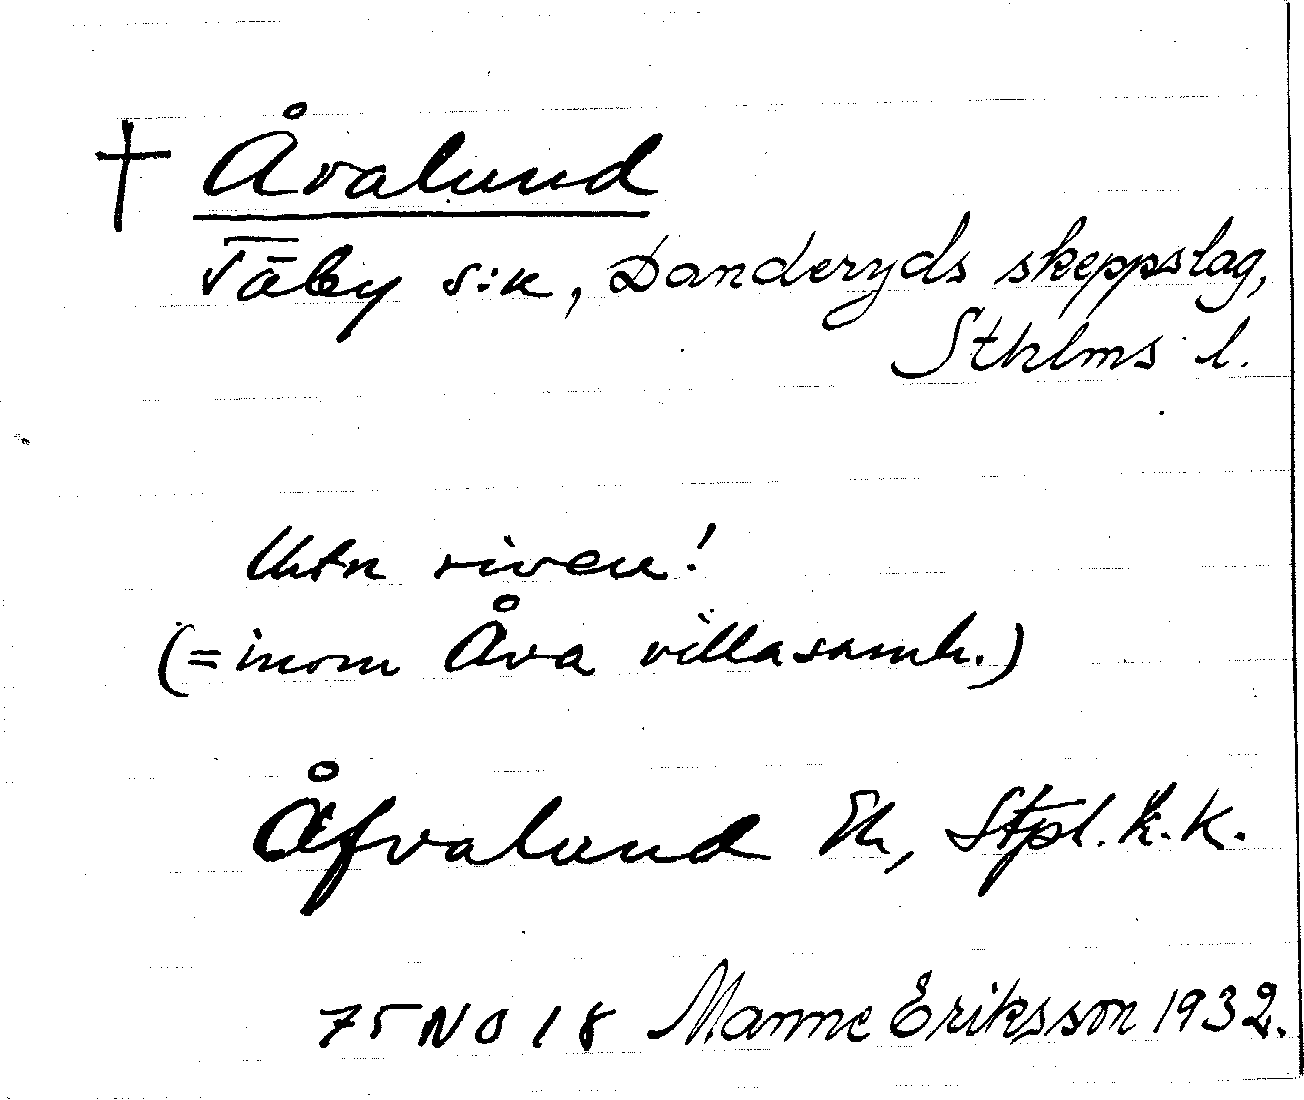 † Åvalund
Täby s:n, Danderyds skeppslag,
Sthlms l.
riven!
(= inom Åva villasamh.)
Åfvalund Ek, Stpl. k.k.
75 NO 18 Manne Eriksson 1932.